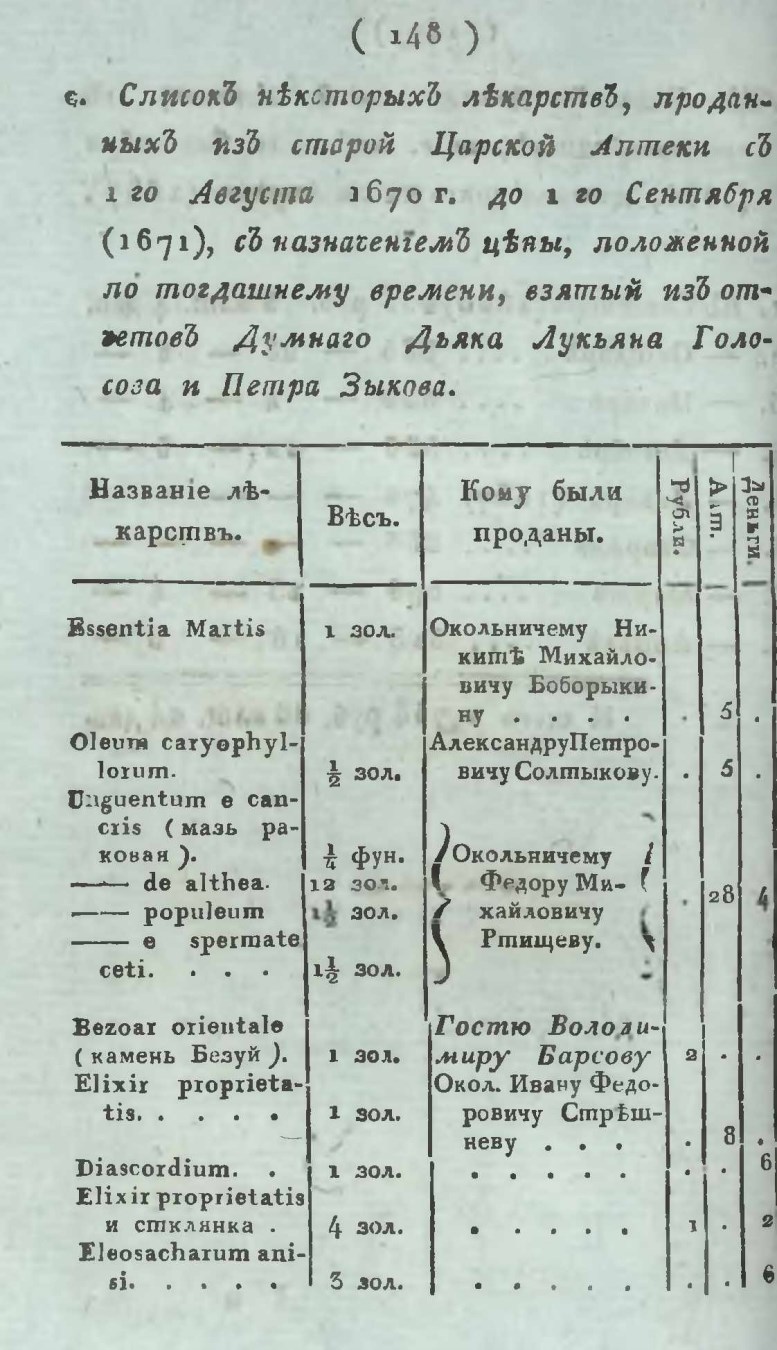 ( 148 )
є. Списокъ нѣксторыхъ лѣкарствъ, продан-
ныхъ изъ старой Царской Аптеки съ
1 го Августа 1670 г. до 1 го Сентября
(1671), съ назначенїемъ цѣны, положенной
по тогдашнему времени, взятый изъ от-
четовъ Думнаго Дьяка Лукьяна Голо-
соза и Петра Зыкова.
Названіе лѣ-
карствъ.
Вѣсъ.
Кому были
проданы.
Рубли.
Алт.
Деньги.
Essentia Martis 1 зол. Окольничему Ни-
китѣ Михайло-
вичу Боборыки-
ну . . . . . 5 .
Oleum caryophyl- Александру Петро-
lorum. ½ зол. вичу Солтыкову. . 5 .
Unguentum e can-
cris ( мазь ра-
ковая ). ¼ фун. Окольничему
—— de althea. 12 зол. Федору Ми- . 28 4
—— populeum 1½ зол. хайловичу
—— e spermate Ртищеву.
ceti. . . . 1½ зол.
Bezoar orientale Гостю Володи-
( камень Безуй ). 1 зол. миру Барсову 2 . .
Elixir proprieta- Окол. Ивану Федо-
tis. . . . . 1 зол. ровичу Стрѣш-
неву . . . . 8 .
Diascordium. . 1 зол. . . . . . . . 6
Elixir proprietatis
и стклянка . 4 зол. . . . . . 1 . 2
Eleosacharum ani-
si. . . . . 3 зол. . . . . . . . 6